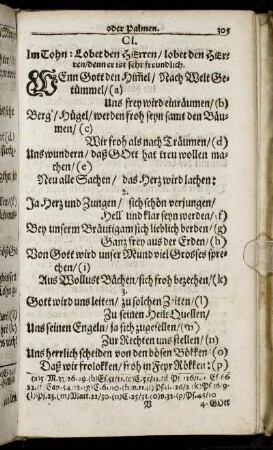 oder Palmen. 305
CI.
Im Tohn: Lobet den HErren/ lobet den HEr-
ren/denn er ist sehr freundlich.
WEnn Gott den Him̄el/ Nach Welt Ge-
tümmel/(a)
Uns frey wird einräumen/(b)
Berg'/ Hügel/ werden froh seyn samt den Bäu-
men/(c)
Wir froh als nach Träumen/(d)
Uns wundern/ daß GOtt hat treu wollen ma-
chen/(e)
Neu alle Sachen/ das Herz wird lachen:
2.
Ja Herz und Zungen/ sich schön verjungen/
Hell und klar seyn werden/(f)
Bey unserm Bräutigam sich lieblich berden/(g)
Ganz frey aus der Erden/(h)
Von Gott wird unser Mund viel Grosses spre-
chen/(i)
Aus Wollust Bächen/sich froh bezechen/(k)
3.
Gott wird uns leiten/ zu solchen Zeiten/(l)
Zu seinen Heils Quellen/
Uns seinen Engeln/ ja sich zugesellen/(m)
Zur Rechten uns stellen/(n)
Uns herrlich scheiden von den bösen Böcken (o)
Daß wir frolokken/ froh in Feyr Rökken: (p)
V 4. GOtt